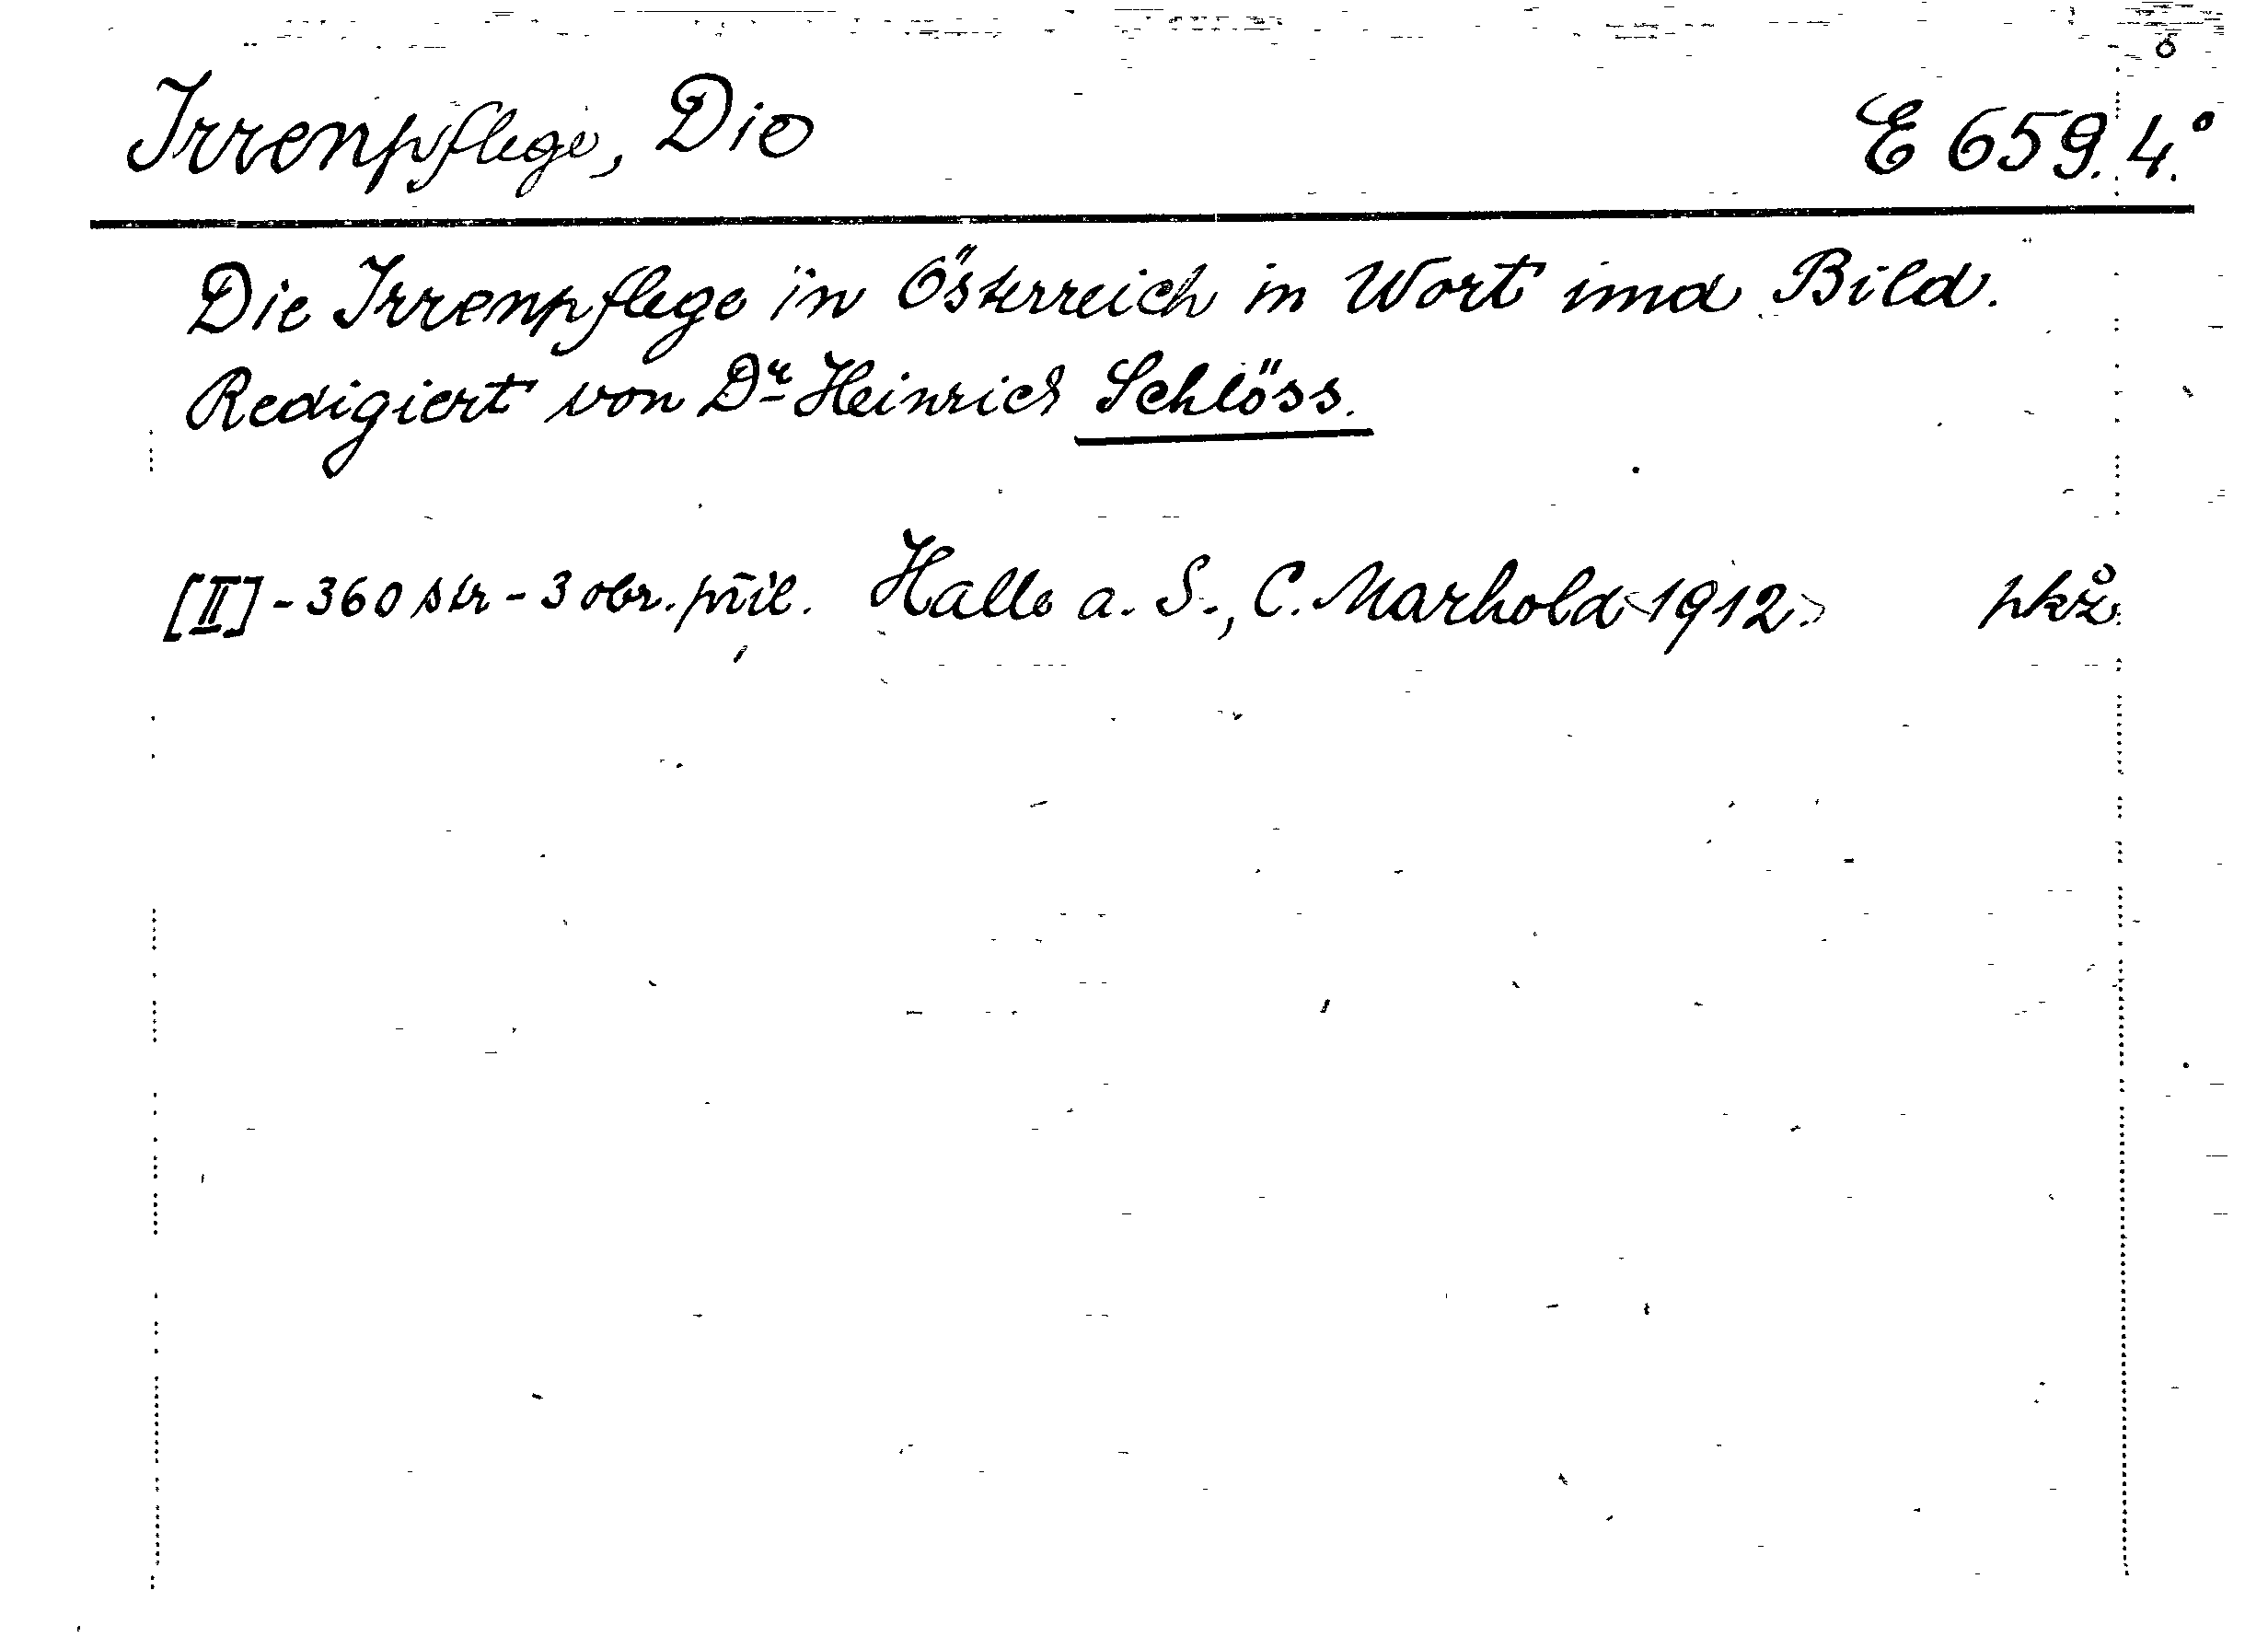 Irrenpflege, Die E 659.4.°
Die Irrenpflege in Österreich in Wort und Bild.
Redigiert von Dr Heinrich Schlöss.
[II] - 360 str - 3 obr. příl. Halle a. S., C. Marhold <1912.> pkž